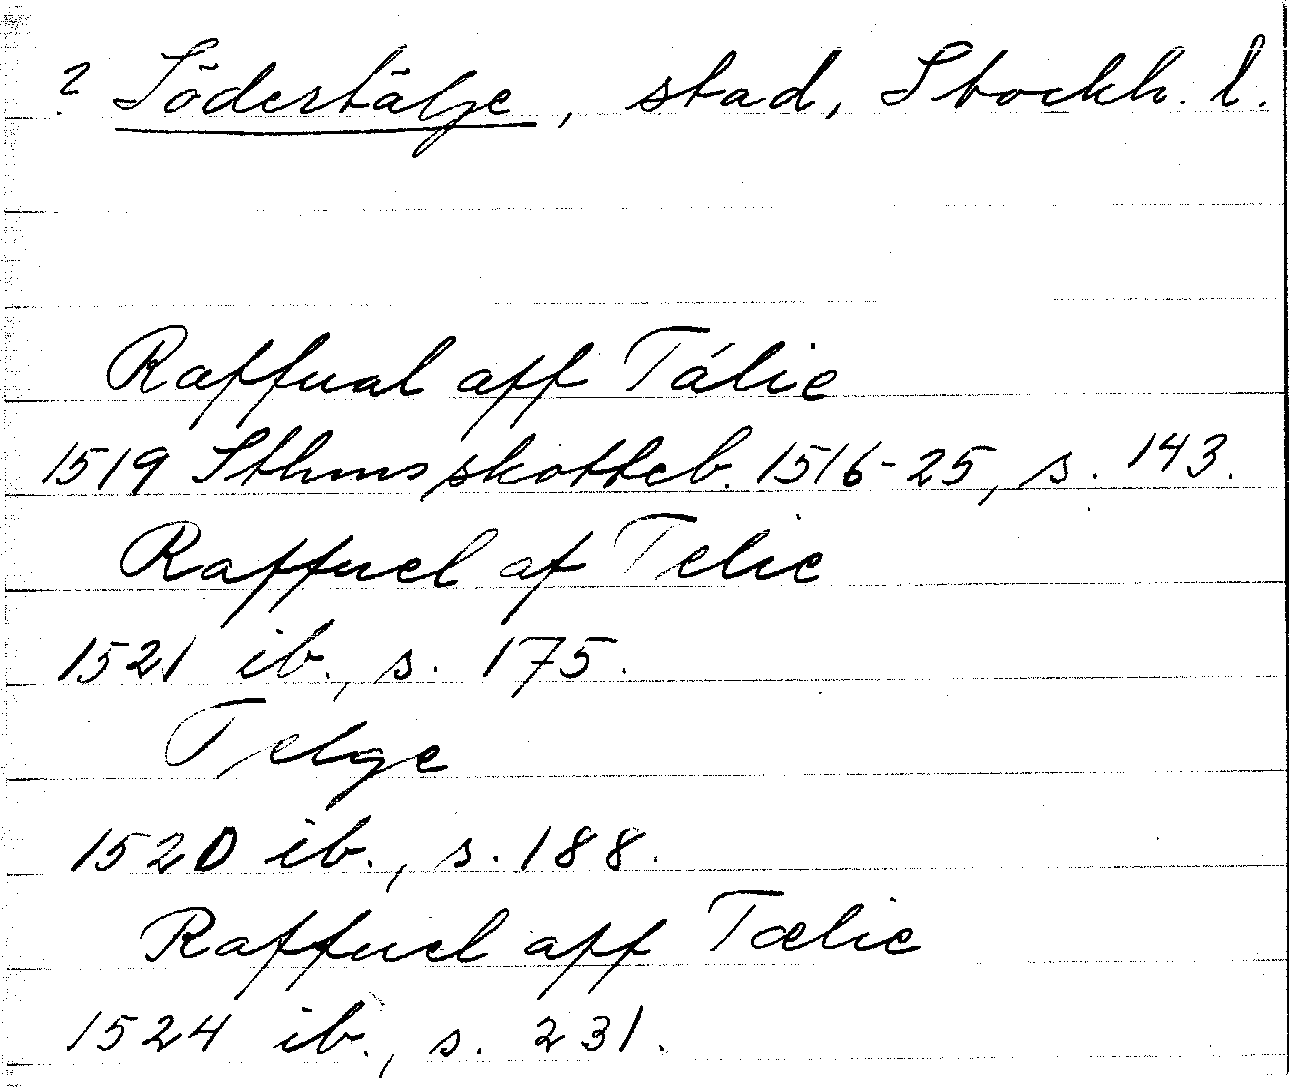 ? Södertälje, stad, Stockh. l.
Raffual aff Tálie
1519 Sthms skotteb. 1516-25, s. 143.
Raffuel af Telie
1521 ib., s. 175.
Telge
1520 ib., s. 188.
Raffuel aff Tælie
1524 ib., s. 231.